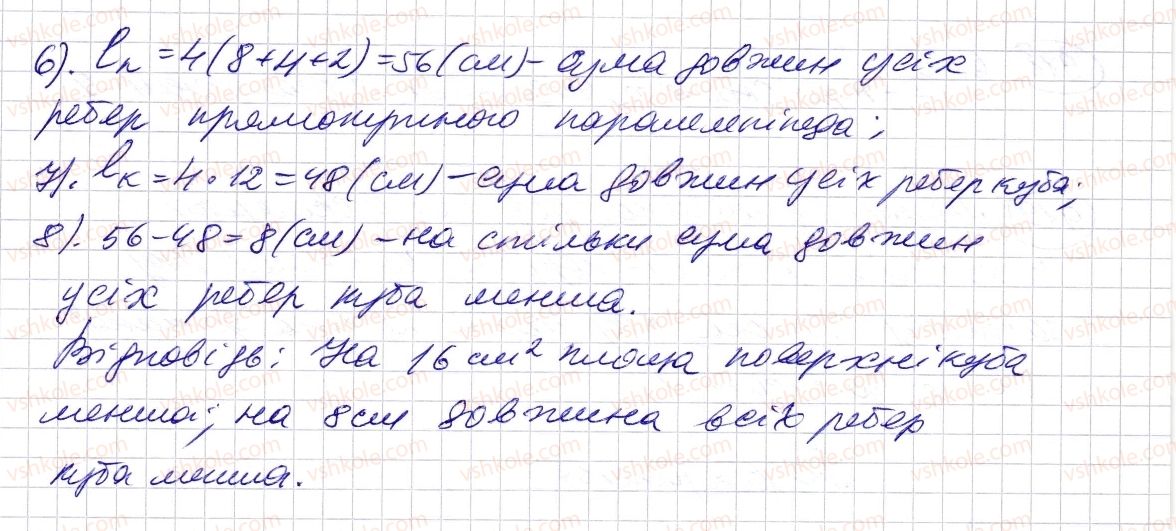 6). lп = 4(8+4+2)=56(см) - сума довжин усіх
ребер прямокутного паралелепіпеда;
7). lк = 4•12 = 48(см) - сума довжин усіх ребер куба;
8). 56-48=8(см) - на стільки сума довжин
усіх ребер куба менша.
Відповідь: На 16 см² площа поверхні куба
менша; на 8см довжина всіх ребер
куба менша.